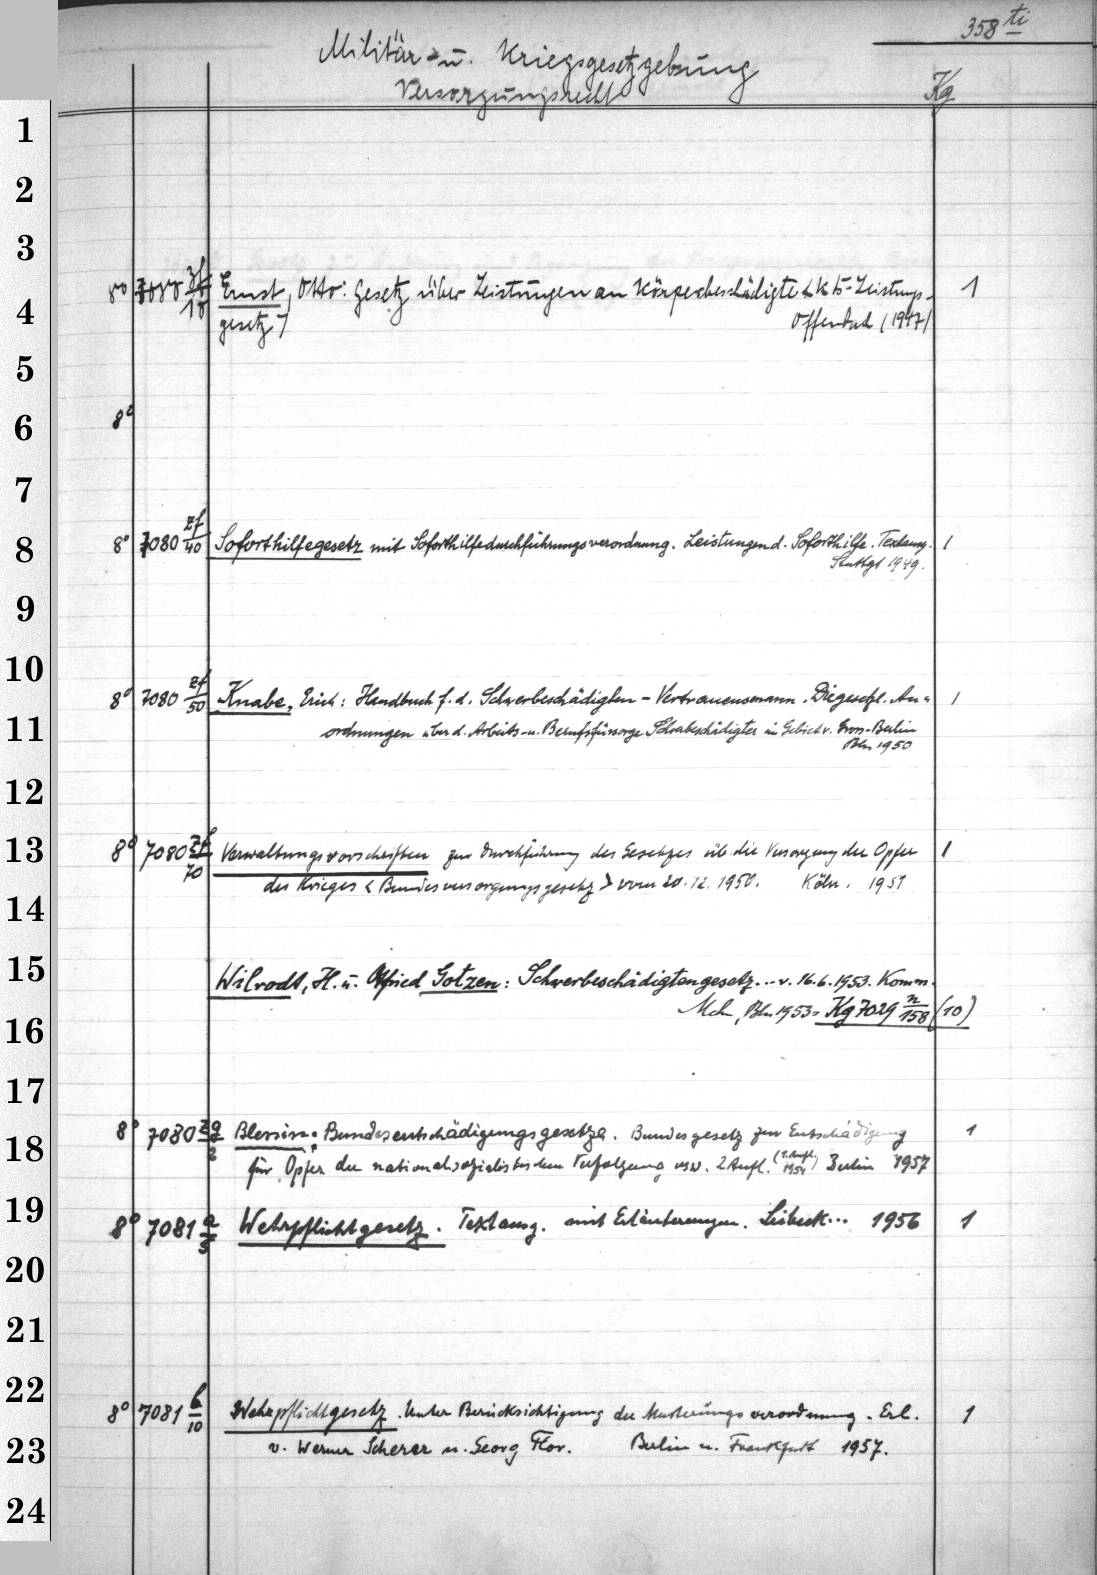 358 ti
Militär- u. Kriegsgesetzgebung
Versorgungsrecht
Kg
1
2
3
4
8° 7080 zf/10 Ernst, Otto: Gesetz über Leistungen an Körperbeschädigte <KB-Leistungs- 1
gesetz> Offenbach (1947)
5
6
8°
7
8
8° 7080 zf/40 Soforthilfegesetz mit Soforthilfedurchführungsverordnung. Leistungen d. Soforthilfe. Textausg. 1
Stuttgt 1949.
9
10
8° 7080 zf/50 Knabe, Erich: Handbuch f. d. Schwerbeschädigten - Vertrauensmann. Die gesetzl. An- 1
11
ordnungen über d. Arbeits- u. Berufsfürsorge Schwerbeschädigter im Gebiet v. Gross-Berlin
Bln 1950
12
13
8° 7080 zf/70 Verwaltungsvorschriften zur Durchführung des Gesetzes üb. die Versorgung der Opfer 1
des Krieges <Bundesversorgungsgesetz> vom 20.12.1950. Köln. 1951
14
15
Wilrodt, H. u. Otfried Gotzen: Schwerbeschädigtengesetz... v. 16.6.1953. Komm.
16
Mch, Bln 1953 = Kg 7029 n/158 (10)
17
18
8° 7080 zg/2 Blessin: Bundesentschädigungsgesetze. Bundesgesetz zur Entschädigung 1
für Opfer der nationalsozialistischen Verfolgung usw. 2. Aufl. (1. Aufl. 1954) Berlin 1957
19
8° 7081 a/5 Wehrpflichtgesetz. Textausg. mit Erläuterungen. Lübeck... 1956 1
20
21
22
8° 7081 b/10 Wehrpflichtgesetz. Unter Berücksichtigung der Musterungsverordnung. Erl. 1
23
v. Werner Scherer u. Georg Flor. Berlin u. Frankfurt 1957.
24